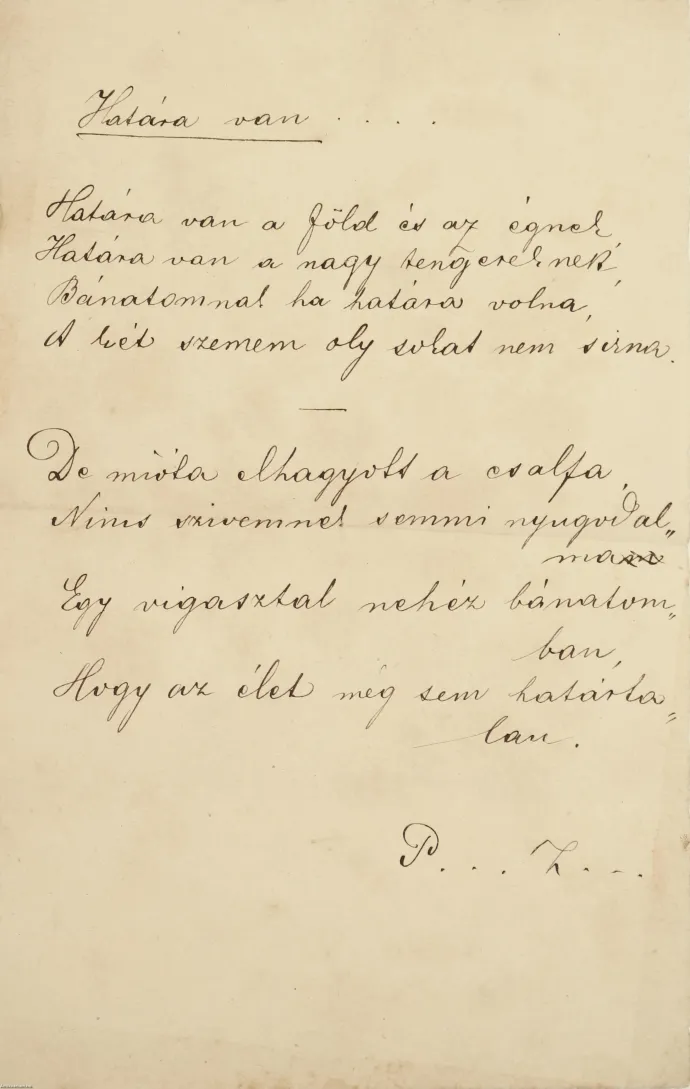 Határa van . . . .
Határa van a föld és az égnek,
Határa van a nagy tengereknek,
Bánatomnak ha határa volna,
A két szemem oly sokat nem sirna.
De mióta elhagyott a csalfa,
Nincs szivemnek semmi nyugodal„
ma
Egy vigasztal nehéz bánatom„
ban,
Hogy az élet még sem határta„
lan.
P. . . Z. . . .